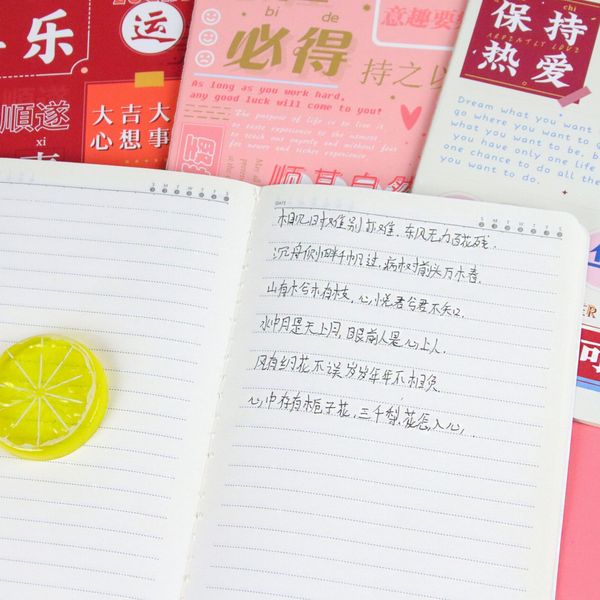 乐
运
順遂
xi
大吉大
心想事
bi de
必得
意趣要
持之以
As long as you work hard,
any good luck will come to you!
The purpose of life is to live it
to taste experience to the utmost
to reach out eagerly and without fear
for newer and richer experience
顺其自然
chi
保持
热爱
Dream what you want
go where you want to g
what you want to be, b
you have only one life
one chance to do all the
you want to do.
S M T W T F S
DATE
S M T W T F S
相见时难别亦难. 东风无力百花残.
沉舟侧畔千帆过, 病树前头万木春.
山有木兮木有枝, 心悦君兮君不知.
水中月是天上月, 眼前人是心上人.
风有约花不误 岁岁年年不相负
心中存有栀子花, 三千梨花怎入心..